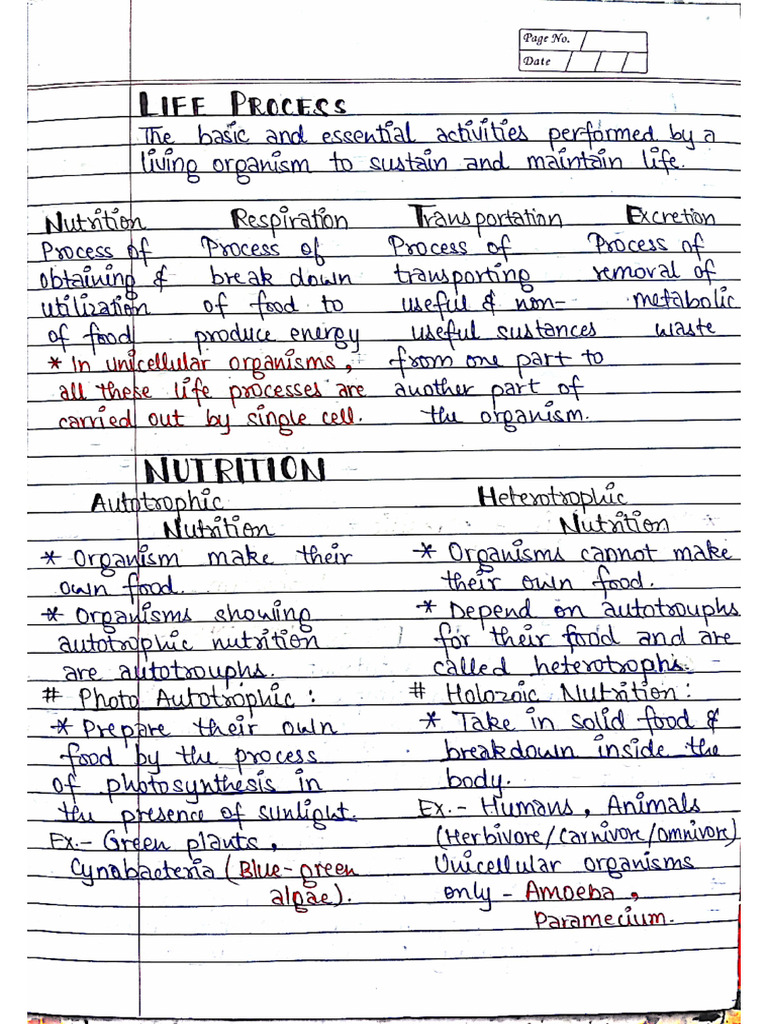 Page No.
Date
LIFE PROCESS
The basic and essential activities performed by a
living organism to sustain and maintain life.
Nutrition Respiration Transportation Excretion
Process of Process of Process of Process of
obtaining & break down transporting removal of
utilization of food to useful & non- metabolic
of food produce energy useful sustances waste
* In unicellular organisms, from one part to
all these life processes are another part of
carried out by single cell. the organism.
NUTRITION
Autotrophic Heterotrophic
Nutrition Nutrition
* Organism make their * Organisms cannot make
own food. their own food.
* Organisms showing * Depend on autotrouphs
autotrophic nutrition for their food and are
are autotrouphs. called heterotrophs.
# Photo Autotrophic : # Holozoic Nutrition :
* Prepare their own * Take in solid food &
food by the process breakdown inside the
of photosynthesis in body.
the presence of sunlight. Ex.- Humans, Animals
Ex.- Green plants, (Herbivore/Carnivore/Omnivore)
Cynobacteria (Blue-green Unicellular organisms
algae). only - Amoeba,
Paramecium.